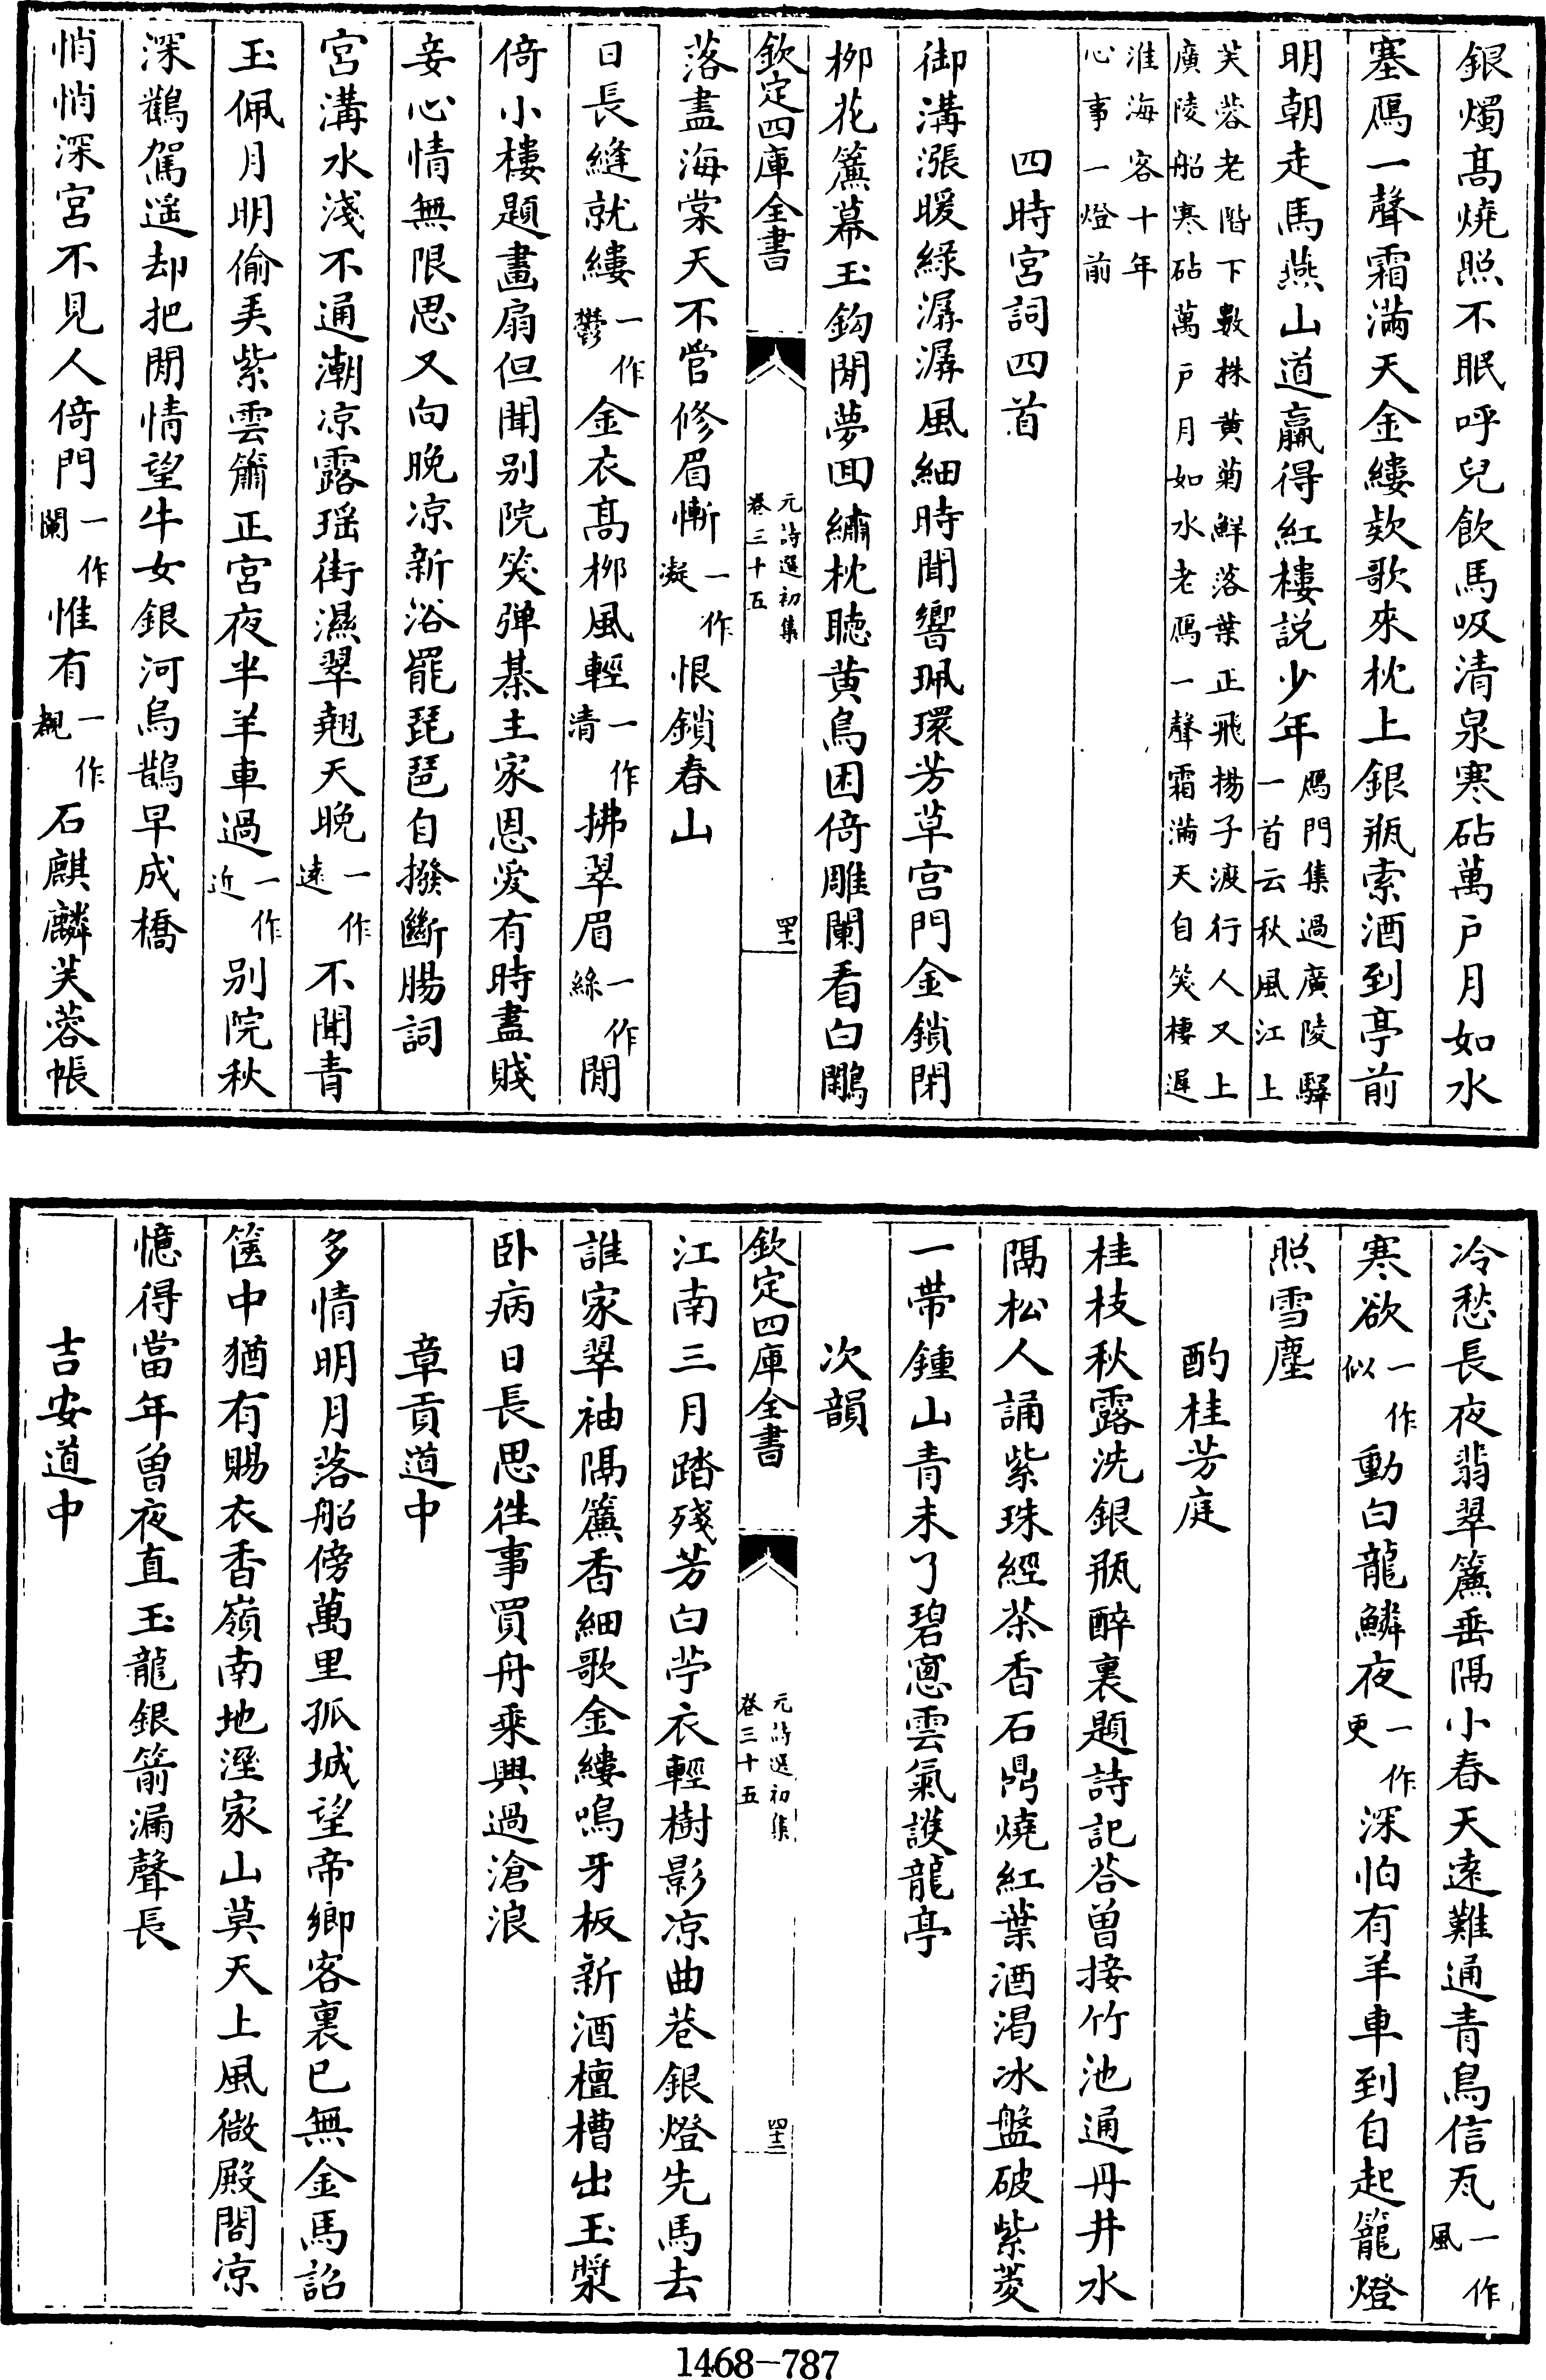 銀燭髙燒照不眠呼兒飲馬吸清泉寒砧萬户月如水
塞鴈一聲霜滿天金縷欵歌來枕上銀瓶索酒到亭前
明朝走馬燕山道贏得紅樓説少年鴈門集過廣陵驛一首云秋風江上
芙蓉老階下數株黄菊鮮落葉正飛揚子渡行人又上廣陵船寒砧萬户月如水老鴈一聲霜滿天自笑棲遲
淮海客十年心事一燈前
四時宮詞四首
御溝漲暖綠潺潺風細時聞響珮環芳草宫門金鎖閉
栁花簾幕玉鈎閒夢回繡枕聴黄鳥困倚雕闌看白鷴
欽定四庫全書
元詩選初集
卷三十五
四十一
落盡海棠天不管修眉慚一作凝恨鎖春山
日長縫就縷一作鬱金衣髙栁風輕一作清拂翠眉一作絲閒
倚小樓題畫扇但聞别院笑彈棊主家恩愛有時盡賤
妾心情無限思又向晚凉新浴罷琵琶自撥斷腸詞
宮溝水淺不通潮凉露瑶街濕翠翹天晚一作遠不聞青
玉佩月明偷弄紫雲簫正宮夜半羊車過一作近别院秋
深鶴駕遥却把閒情望牛女銀河烏鵲早成橋
悄悄深宮不見人倚門一作闌惟有一作覩石麒麟芙蓉帳
冷愁長夜翡翠簾垂隔小春天遠難通青鳥信瓦一作風
寒欲一作似動白龍鱗夜一作更深怕有羊車到自起籠燈
照雪塵
酌桂芳庭
桂枝秋露洗銀瓶醉裏題詩記荅曽接竹池通丹井水
隔松人誦紫珠經茶香石鼎燒紅葉酒渴冰盤破紫菱
一帶鍾山青未了碧窻雲氣護龍亭
次韻
欽定四庫全書
元詩選初集
卷三十五
四十二
江南三月踏殘芳白苧衣輕樹影凉曲巷銀燈先馬去
誰家翠袖隔簾香細歌金縷鳴牙板新酒檀槽出玉漿
卧病日長思徃事買舟乘興過滄浪
章貢道中
多情明月落船傍萬里孤城望帝鄉客裏已無金馬詔
篋中猶有賜衣香嶺南地溼家山莫天上風微殿閣凉
憶得當年曽夜直玉龍銀箭漏聲長
吉安道中
1468-787